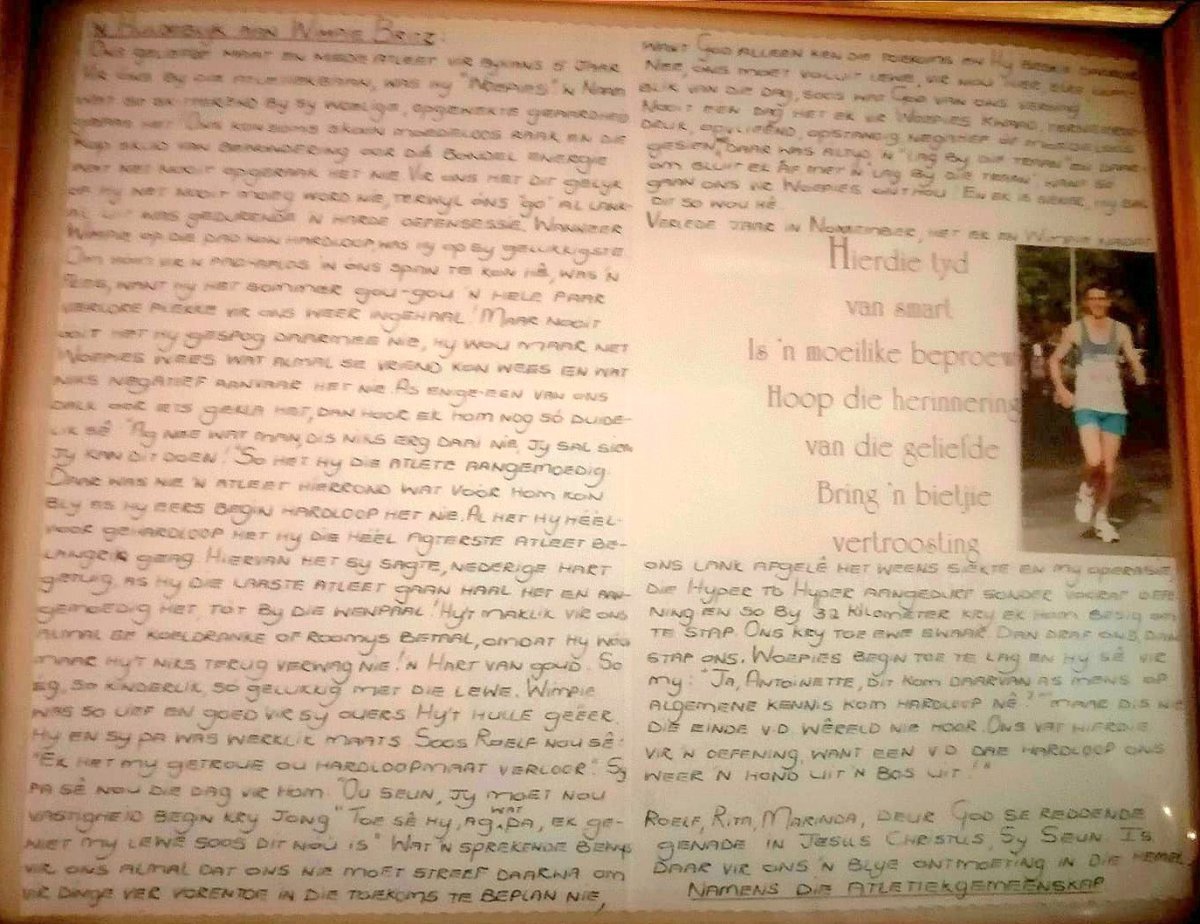 'n Huldeblyk aan Wimpie Britz:
Ons geliefde maat en mede atleet vir bykans 5 jaar
Vir ons by die atletiekbaan, was hy "Woepies" 'n naam
wat so by sy woelige, opgewekte geaardheid
gepas het. Ons kon soms skoon moedeloos raak en die
kop skud van bewondering oor dié bondel energie
wat net nooit opgeraak het nie. Vir ons het dit gelyk
of hy net nooit moeg word nie, terwyl óns "go" al lank-
al uit was gedurende 'n harde oefensessie. Wanneer
Wimpie op die pad kon hardloop, was hy op sy gelukkigste
Om hom vir 'n padaflos in ons span te kon hê, was 'n
fees, want hy het sommer gou-gou 'n hele paar
verlore plekke vir ons weer ingehaal! Maar nooit
ooit het hy gespog daarmee nie, hy wou maar net
Woepies wees wat almal se vriend kon wees en wat
niks negatief aanvaar het nie. As enige-een van ons
dalk oor iets gekla het, dan hoor ek hom nog só duide-
lik sê "Ag nee wat man, dis niks erg daai nie, jy sal sien
jy kan dit doen!" So het hy die atlete aangemoedig.
Daar was nie 'n atleet hierrond wat vóór hom kon
bly as hy eers begin hardloop het nie. Al het hy héél-
voor gehardloop het hy die héél agterste atleet be-
langrik geag. Hiervan het sy sagte, nederige hart
getuig, as hy die laaste atleet gaan haal het en aan-
gemoedig het, tot by die wenpaal! Hy't maklik vir ons
almal se koeldranke of roomys betaal, omdat hy wou
maar hy't niks terug verwag nie! 'n Hart van goud. So
eg, so kinderlik, so gelukkig met die lewe. Wimpie
was so lief en goed vir sy ouers. Hy't hulle geëer.
Hy en sy pa was werklik maats. Soos Roelf nou sê:
"Ek het my getroue ou hardloopmaat verloor". Sy
pa sê nou die dag vir hom: "Ou seun, jy moet nou
vastigheid begin kry jong" Toe sê hy, "Ag wat, pa, ek ge-
niet my lewe soos dit nou is" Wat 'n sprekende bewys
vir ons almal dat ons nie moet streef daarna om
vir dinge ver vorentoe in die toekoms te beplan nie,
want God alleen ken die toekoms en Hy
Nee, ons moet voluit lewe, vir nou, vir elke
blik van die dag, soos wat God van ons verwag.
Nooit een dag het ek vir Woepies kwaad,
druk, opvliënd, opstandig negatief of
gesien, daar was altyd 'n "lag by die tema" en
om sluit ek af met 'n "lag by die tema", want so
gaan ons vir Woepies onthou. En ek is seker, hy sal
dit so wou hê.
Verlede jaar in November, het ek en Wimpie nadat
Hierdie tyd
van smart
Is 'n moeilike beproew
Hoop die herinnering
van die geliefde
Bring 'n bietjie
vertroosting
ons lank afgelê het weens siekte en my operasie,
die Hyper to Hyper aangedurf sonder vooraf oefe-
ning en so by 32 kilometer kry ek hom besig om
te stap. Ons kry toe ewe swaar. Dan draf ons, dan
stap ons. Woepies begin toe te lag en hy sê vir
my: "Ja, Antoinette, dit kom daarvan as mens op
algemene kennis kom hardloop nê?" "Maar dis nie
die einde v.d. wêreld nie hoor. Ons vat hierdie
vir 'n oefening, want een v.d. dae hardloop ons
weer 'n hond uit 'n bos uit!"
Roelf, Rita, Marinda, deur God se reddende
genade in Jesus Christus, Sy Seun. Is
daar vir ons 'n blye ontmoeting in die hemel.
Namens die atletiekgemeenskap